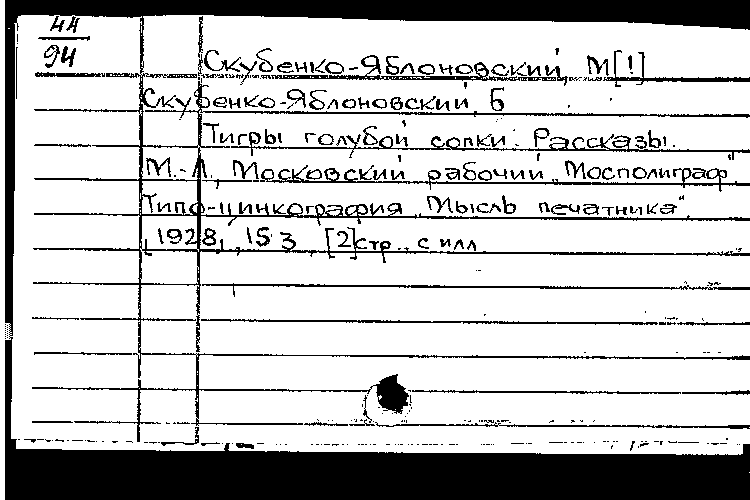 44
94
Скубенко-Яблоновский, М[!]
Скубенко-Яблоновский, Б
Тигры голубой сопки. Рассказы.
М.-Л., Московский рабочий, „Мосполиграф"
Типо-цинкография „Мысль печатника",
[1928], 153, [2]стр., с илл.